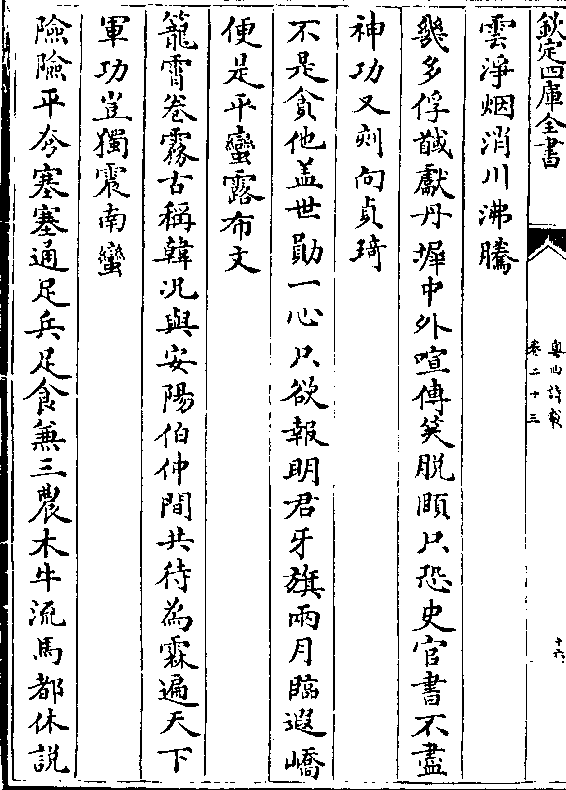 欽定四庫全書
粵西詩載
卷二十三
十六
雲淨烟消川沸騰
幾多俘馘獻丹墀中外喧傳笑脱頤只恐史官書不盡
神功又剡向貞琦
不是貪他盖世勛一心只欲報明君牙旗兩月臨遐嶠
便是平蠻露布文
籠霄卷霧古稱韓况與安陽伯仲間共待為霖遍天下
軍功豈獨震南蠻
險險平夸塞塞通足兵足食兼三農木牛流馬都休説